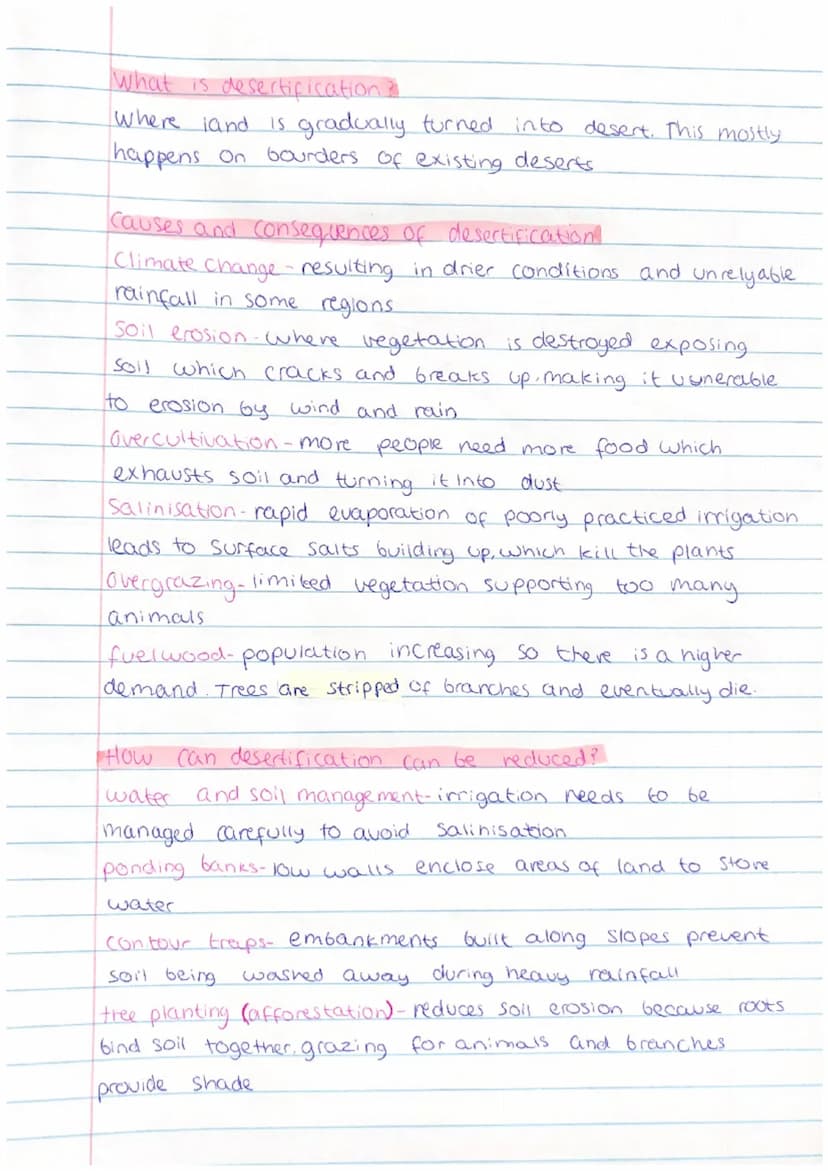 What is desertification?
Where land is gradually turned into desert. This mostly
happens on bourders of existing deserts
Causes and consequences of desertification
Climate change - resulting in drier conditions and unrelyable
rainfall in some regions
Soil erosion - where vegetation is destroyed exposing
soil which cracks and breaks up, making it vunerable
to erosion by wind and rain
Overcultivation - more people need more food which
exhausts soil and turning it into dust
Salinisation - rapid evaporation of poorly practiced irrigation
leads to surface salts building up, which kill the plants
Overgrazing - limited vegetation supporting too many
animals
fuelwood - population increasing so there is a higher
demand. Trees are stripped of branches and eventually die.
How can desertification can be reduced?
water and soil management - irrigation needs to be
managed carefully to avoid salinisation
ponding banks - low walls enclose areas of land to store
water
contour traps - embankments built along slopes prevent
soil being washed away during heavy rainfall
tree planting (afforestation) - reduces soil erosion because roots
bind soil together, grazing for animals and branches
provide shade